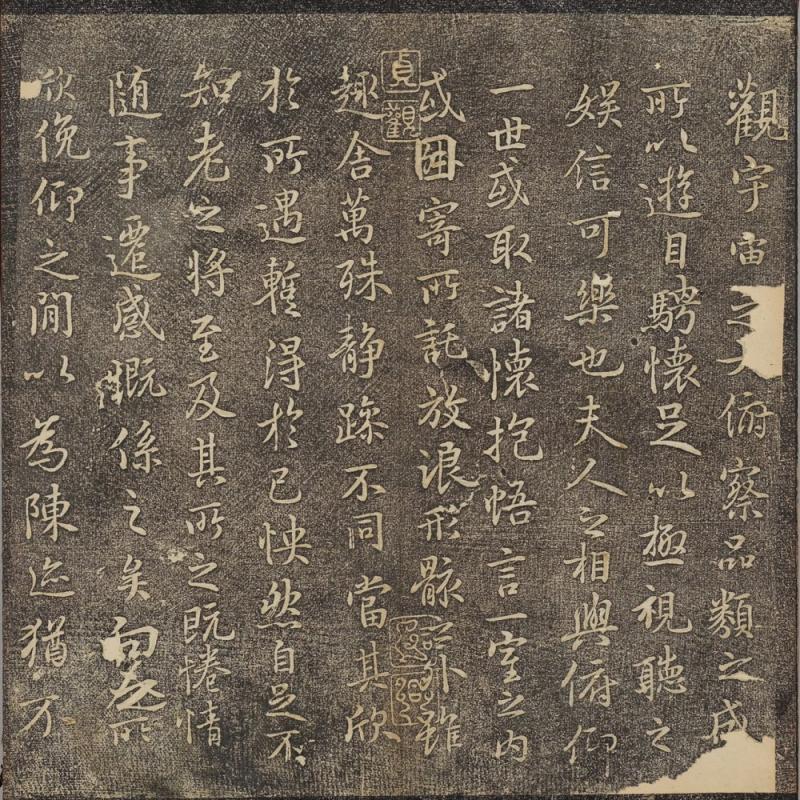 觀宇宙之大俯察品類之盛
所以遊目騁懷足以極視聽之
娛信可樂也夫人之相與俯仰
一世或取諸懷抱悟言一室之內
或因寄所託放浪形骸之外雖
趣舍萬殊静躁不同當其欣
於所遇暫得於己怏然自足不
知老之將至及其所之既惓情
隨事遷感慨係之矣向之所
欣俛仰之閒以為陳迹猶不
貞觀